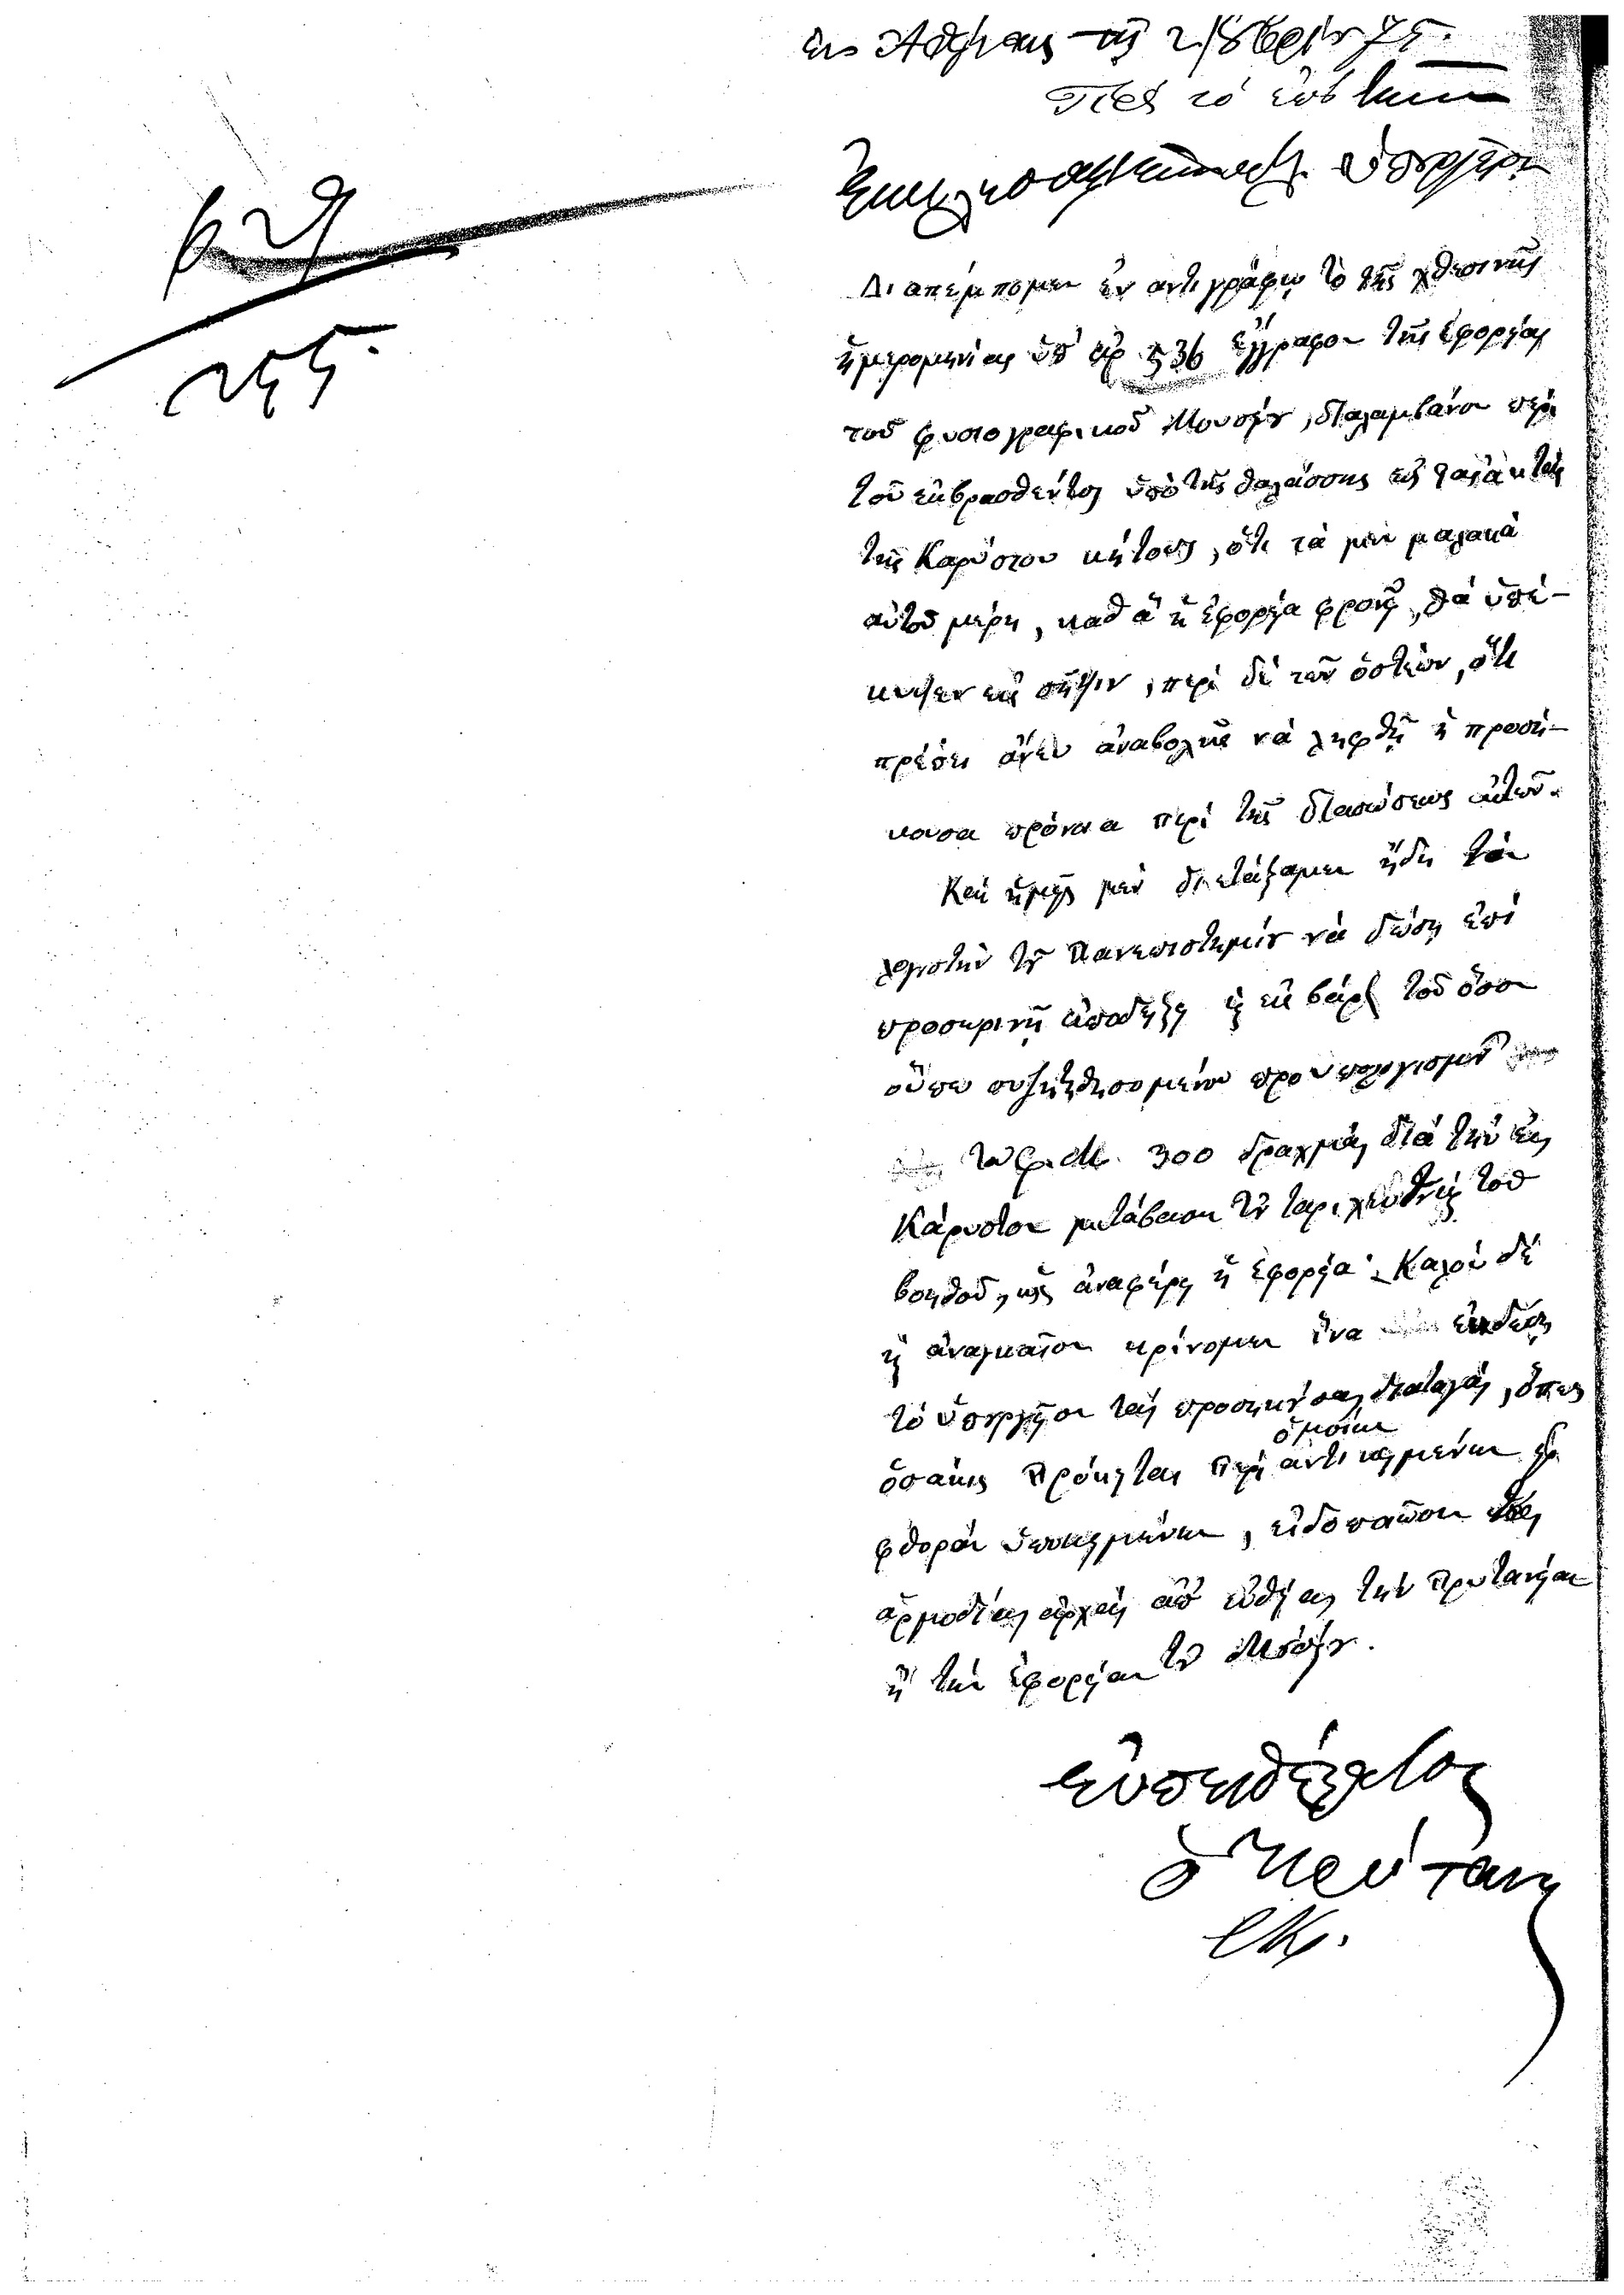 ἐν Ἀθήναις τῇ 2/8βρίου 75.
Πρὸς τὸ ἐπὶ τῶν
Ἐκκλησιαστικῶν ὑπουργεῖον
Διαπέμπομεν ἐν ἀντιγράφῳ τὸ τῆς χθεσινῆς
ἡμερομηνίας ὑπ' ἀρ 536 ἔγγραφον τῆς ἐφορείας
τοῦ φυσιογραφικοῦ Μουσείου, διαλαμβάνον περὶ
τοῦ ἐκβρασθέντος ὑπὸ τῆς θαλάσσης εἰς τὰς ἀκτὰς
τῆς Καρύστου κήτους, ὅτι τὰ μὲν μαλακὰ
αὐτοῦ μέρη, καθ ἃ ἡ ἐφορεία φρονεῖ, θὰ ὑπέ-
κυψεν εἰς σῆψιν, περὶ δὲ τῶν ὀστέων, ὅτι
πρέπει ἄνευ ἀναβολῆς νὰ ληφθῇ ἡ προσή-
κουσα πρόνοια περὶ τῆς διασώσεως αὐτῶν.
Καὶ ἡμεῖς μὲν διετάξαμεν ἤδη τὸν
λογιστὴν τοῦ Πανεπιστημίου νὰ δώσῃ ἐπὶ
προσωρινῇ ἀποδείξει ἐς βάρος τοῦ ὅσον
οὔπω συζητηθησομένου προϋπολογισμοῦ
τοῦ φ. Μ. 300 δραχμὰς διὰ τὴν εἰς
Κάρυστον μετάβασιν τοῦ ταριχευτοῦ καὶ τοῦ
βοηθοῦ, ὡς ἀναφέρει ἡ ἐφορεία. Καλὸν δὲ
καὶ ἀναγκαῖον κρίνομεν ἵνα ἐκδώσῃ
τὸ ὑπουργεῖον τὰς προσηκούσας διαταγάς, ὅπως
ὁμοίων
ὁσάκις πρόκηται περὶ ἀντικειμένων εἰς
φθορὰν ὑποκειμένων, εἰδοποιῶσιν αἱ
ἁρμόδιαι ἀρχαὶ ἀπ' εὐθείας τὴν Πρυτανείαν
ἢ τὴν ἐφορείαν τοῦ Μουσείου.
εὐπειθέστατος
ὁ Πρύτανις
629
255.